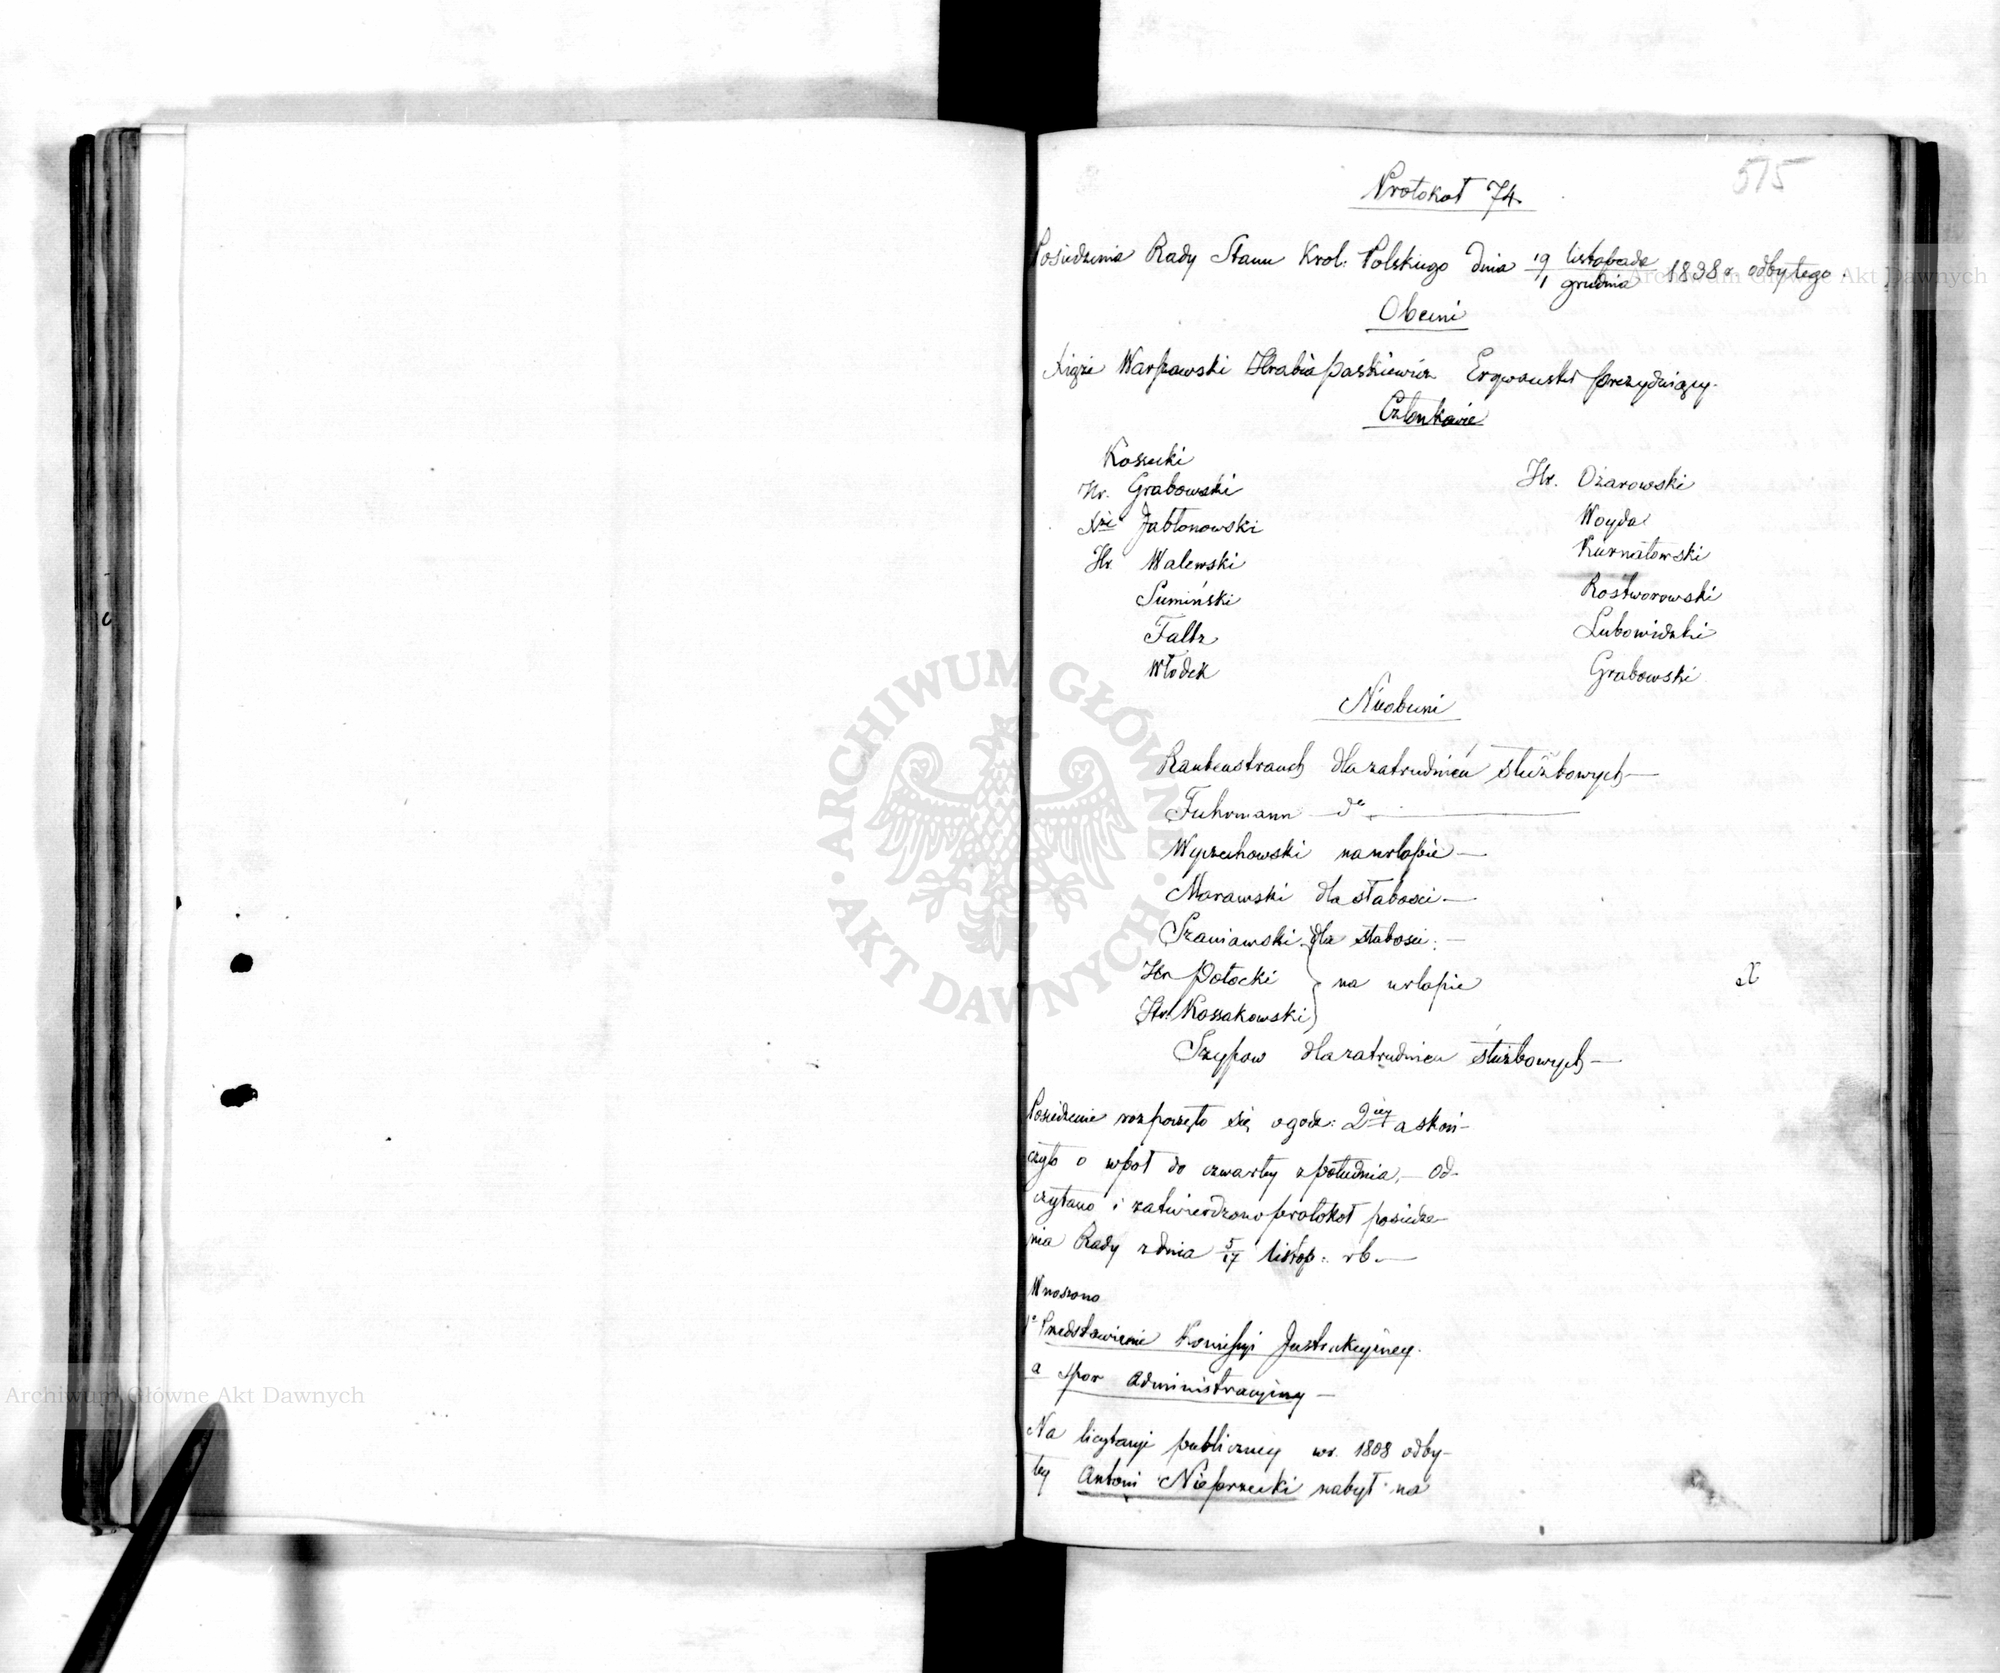 515
Protokoł 74.
Posiedzenia Rady Stanu Król: Polskiego dnia 19 listopada / 1 grudnia 1838 r odbytego.
Obecni
Xiąże Warszawski Hrabia Paskiewicz Erywański prezydujący.
Członkowie
Kossecki
Hr. Grabowski
Xże Jabłonowski
Hr. Walewski
Sumiński
Faltz
Włodek
Hr. Ożarowski
Woyda
Kurnatowski
Rostworowski
Lubowidzki
Grabowski
Nieobecni
Rautenstrauch dla zatrudnień służbowych —
Fuhrmann — do —
Wyczechowski na urlopie —
Morawski dla słabości —
Szaniawski dla słabości: —
Hr Potocki } na urlopie
Hr. Kossakowski }
Szypow dla zatrudnień służbowych —
Posiedzenie rozpoczęto się o godz: 2iey a skoń-
czyło o wpół do czwartey z południa, — Od-
czytano i zatwierdzono protokół posiedze-
nia Rady z dnia 5/17 listop: rb. —
Wnoszono
1o Przedstawienie Komissyi Instrukcyjney.
a spor administracyjny —
Na licytacyi publiczney w r. 1808 odby-
tey Antoni Nieprzecki nabył na
ARCHIWUM GŁÓWNE AKT DAWNYCH
Archiwum Główne Akt Dawnych
Archiwum Główne Akt Dawnych